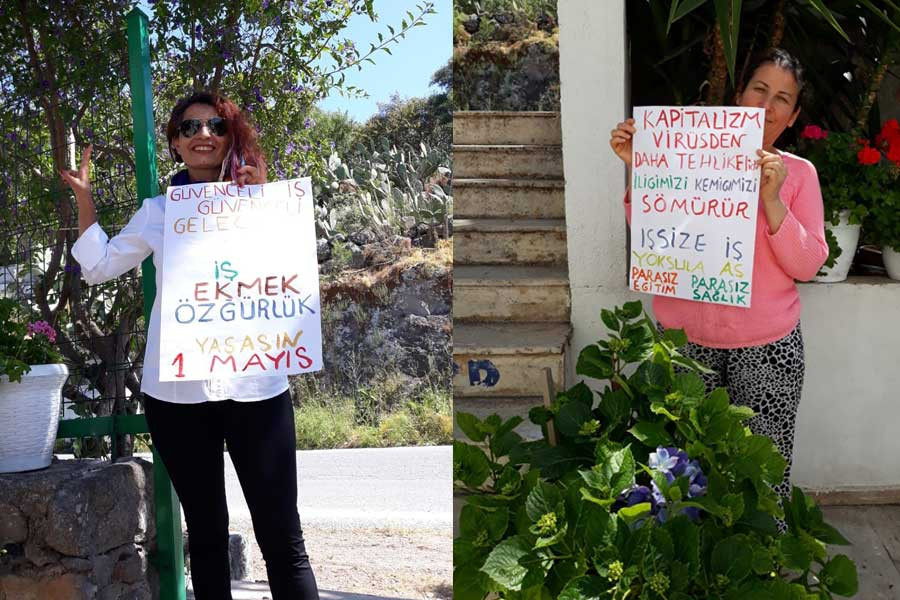 GÜVENCELİ İŞ
GÜVENCELİ
İŞ
EKMEK
ÖZGÜRLÜK
YAŞASIN
1 MAYIS
KAPİTALİZM
VİRÜSDEN
DAHA
İLİGİMİZİ KEMİGİMİZİ
SÖMÜRÜR
IŞSIZE İŞ
YOKSULA AŞ
PARASIZ
EGİTİM
PARASIZ
SAĞLIK